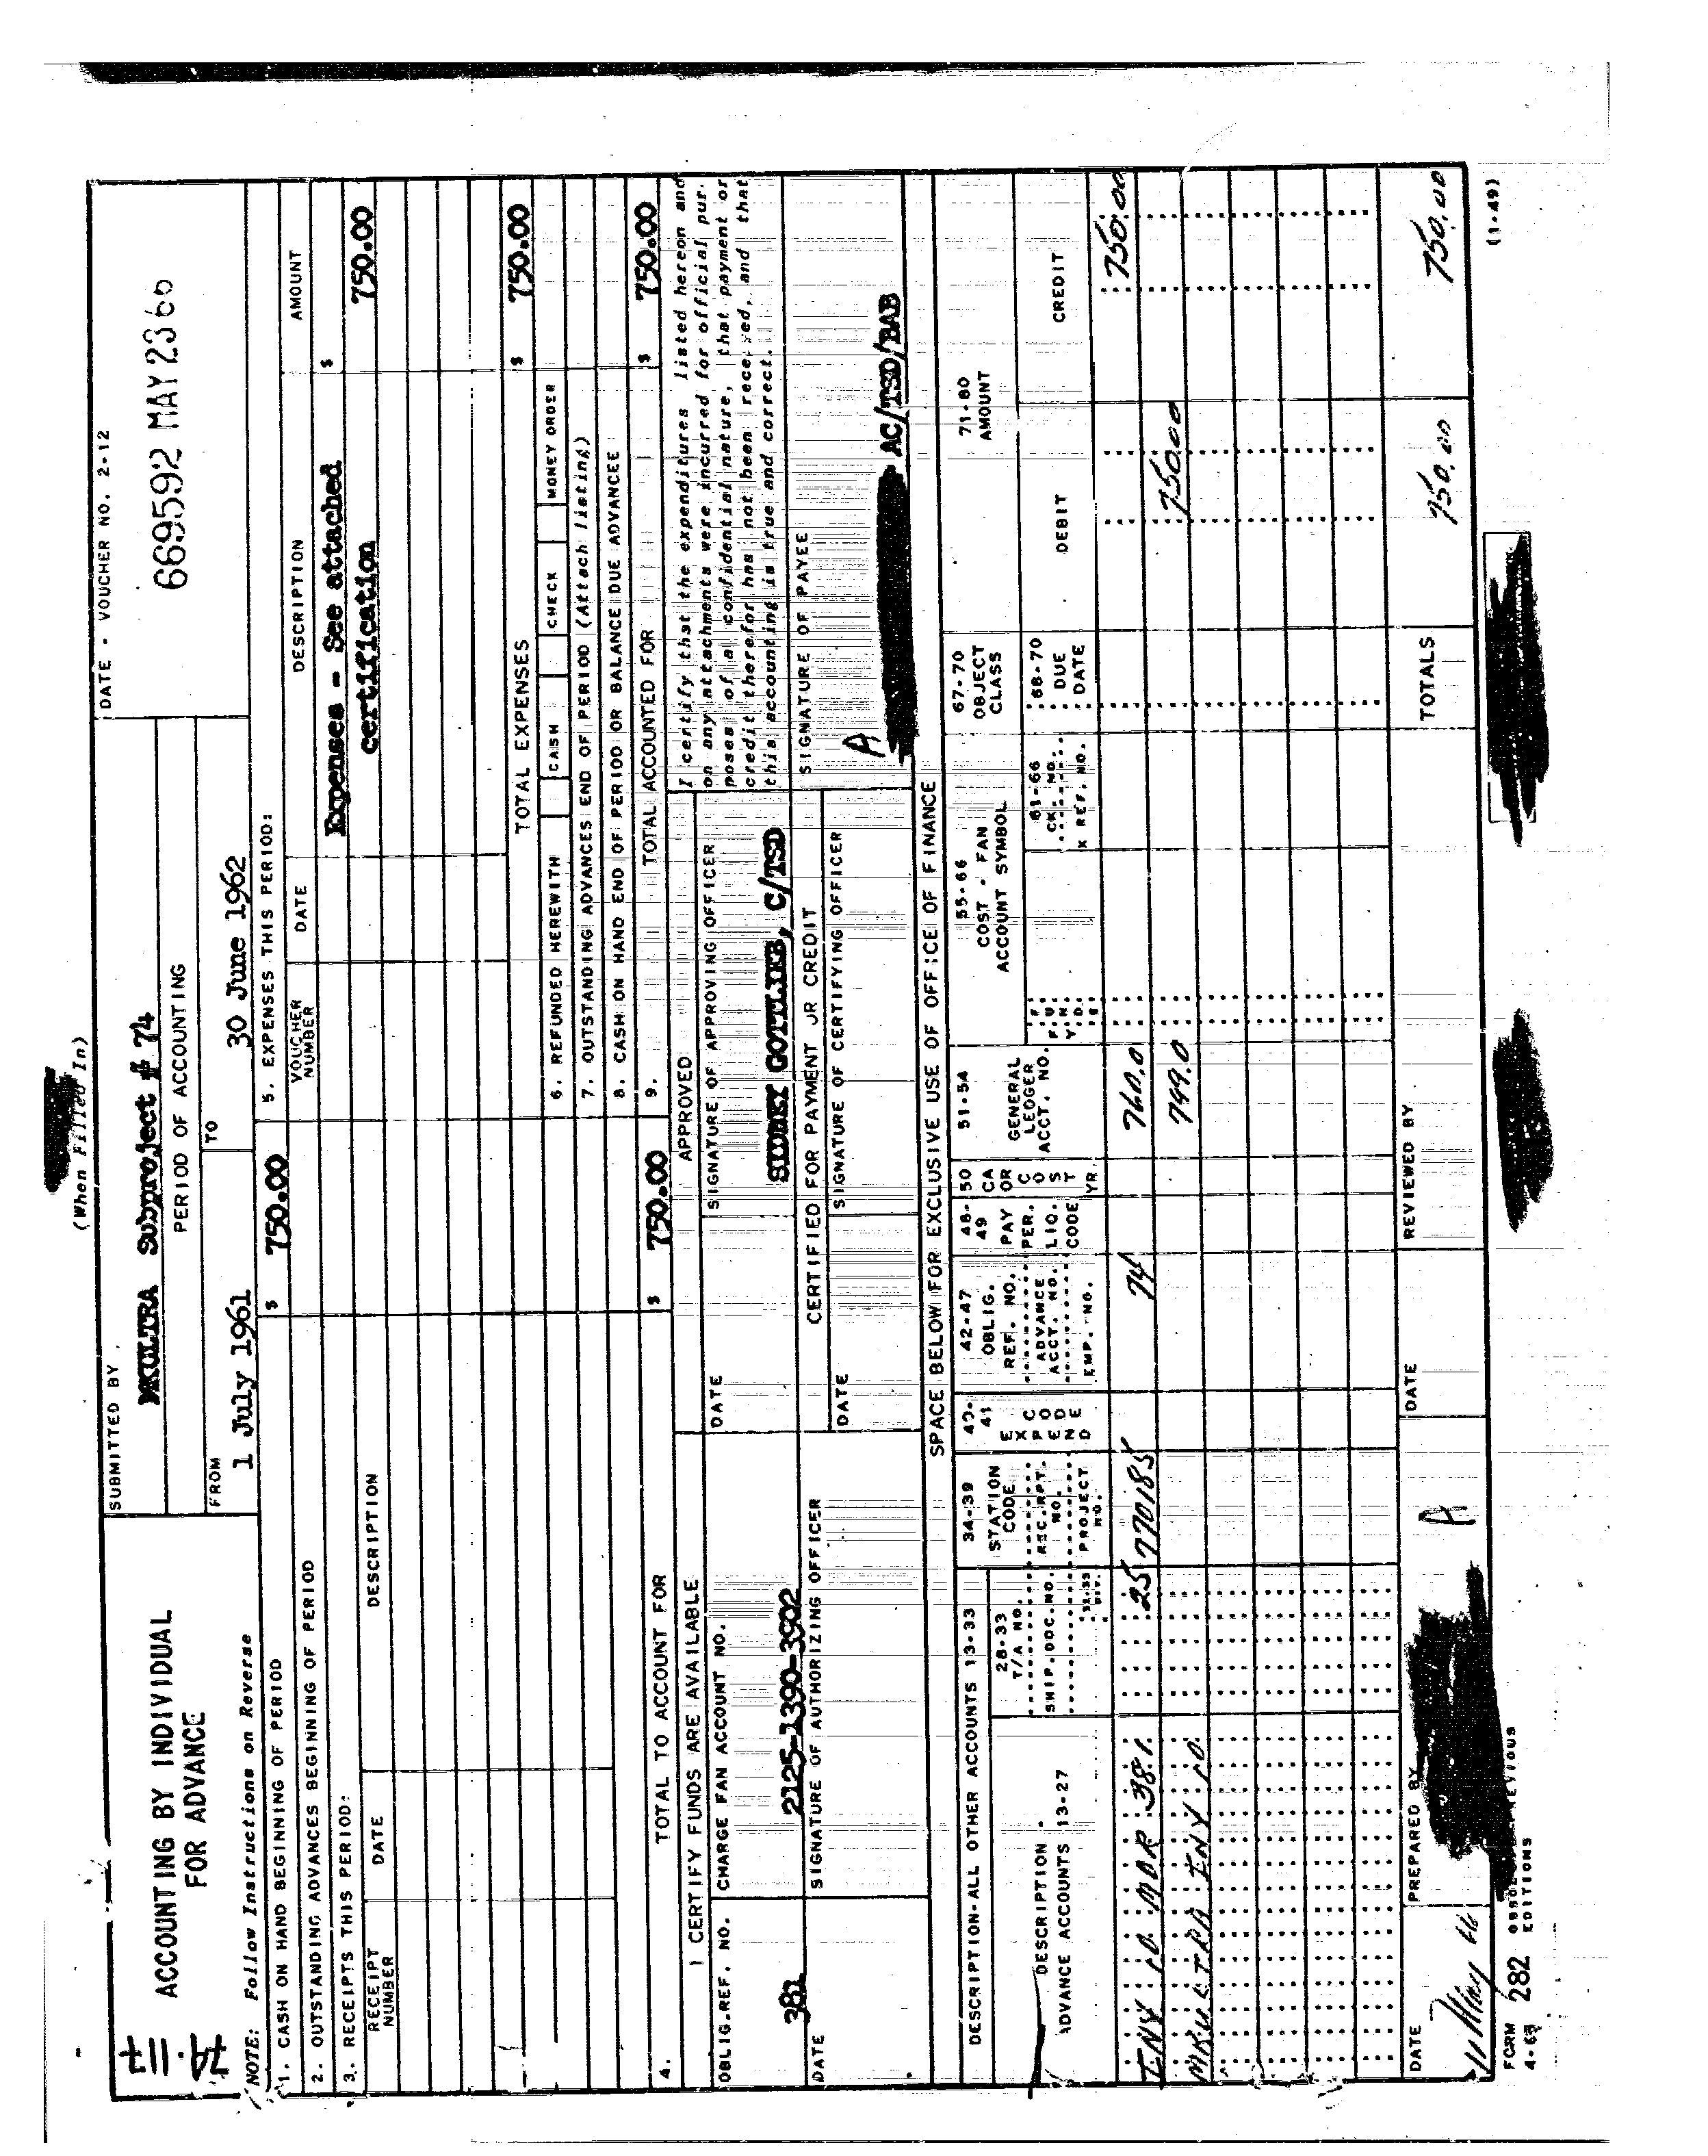 (When Filled In)
74-117
ACCOUNTING BY INDIVIDUAL
FOR ADVANCE
SUBMITTED BY
MKULTRA Subproject # 74
PERIOD OF ACCOUNTING
FROM
1 July 1961
TO
30 June 1962
DATE - VOUCHER NO. 2-12
669592 MAY 23 66
NOTE: Follow Instructions on Reverse
1. CASH ON HAND BEGINNING OF PERIOD
$ 750.00
2. OUTSTANDING ADVANCES BEGINNING OF PERIOD
3. RECEIPTS THIS PERIOD:
RECEIPT NUMBER
DATE
DESCRIPTION
4. TOTAL TO ACCOUNT FOR
$ 750.00
5. EXPENSES THIS PERIOD:
VOUCHER NUMBER
DATE
DESCRIPTION
AMOUNT
Expenses - See attached $
certification 750.00
TOTAL EXPENSES $ 750.00
6. REFUNDED HEREWITH CASH CHECK MONEY ORDER
7. OUTSTANDING ADVANCES END OF PERIOD (Attach listing)
8. CASH ON HAND END OF PERIOD OR BALANCE DUE ADVANCEE
9. TOTAL ACCOUNTED FOR $ 750.00
I CERTIFY FUNDS ARE AVAILABLE
OBLIG.REF. NO.
382
CHARGE FAN ACCOUNT NO.
2125-1390-3902
DATE
SIGNATURE OF AUTHORIZING OFFICER
APPROVED
DATE
SIGNATURE OF APPROVING OFFICER
SIDNEY GOTTLIEB, C/TSD
CERTIFIED FOR PAYMENT OR CREDIT
DATE
SIGNATURE OF CERTIFYING OFFICER
I certify that the expenditures listed hereon and
on any attachments were incurred for official pur-
poses of a confidential nature, that payment or
credit therefor has not been received, and that
this accounting is true and correct.
SIGNATURE OF PAYEE
A
AC/TSD/BAB
SPACE BELOW FOR EXCLUSIVE USE OF OFFICE OF FINANCE
DESCRIPTION-ALL OTHER ACCOUNTS 13-33
DESCRIPTION -
ADVANCE ACCOUNTS 13-27
28-33
T/A NO.
SHIP.DOC.NO.
34-39
STATION
CODE
REC.RPT.
NO.
PROJECT
NO.
40-
41
EXPEND
CODE
42-47
OBLIG.
REF. NO.
ADVANCE
ACCT. NO.
EMP. NO.
48-
49
PAY
PER.
LIQ.
CODE
50
CA
OR
COST
YR
51-54
GENERAL
LEDGER
ACCT. NO.
55-66
COST - FAN
ACCOUNT SYMBOL
61-66
CK. NO.
X REF. NO.
67-70
OBJECT
CLASS
68-70
DUE
DATE
71-80
AMOUNT
DEBIT
CREDIT
25 770185 74 760.0 750.00
MKULTRA 799.0 750.00
DATE
PREPARED BY
A
DATE
REVIEWED BY
TOTALS 750.00 750.00
FORM
4-63 282 EDITIONS
(1-49)